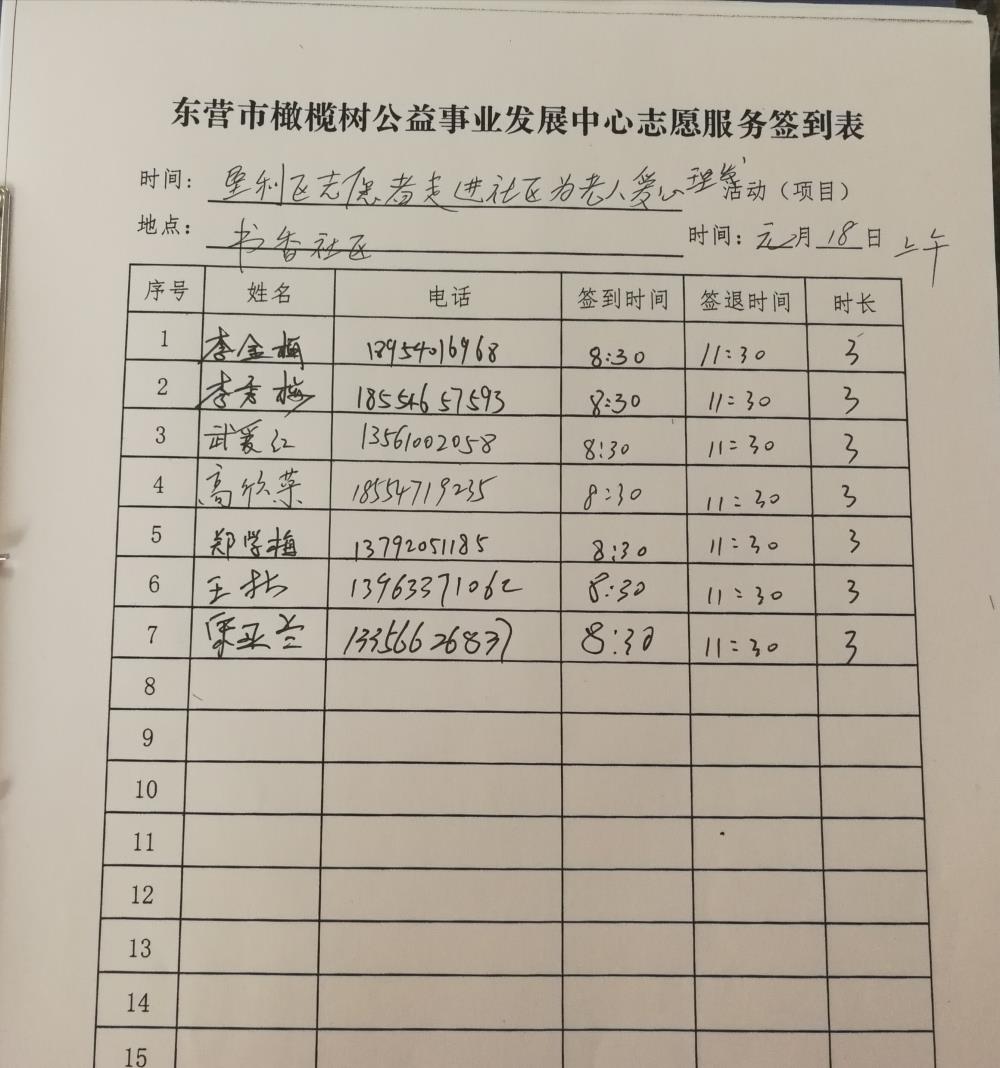 东营市橄榄树公益事业发展中心志愿服务签到表
时间: 垦利区志愿者走进社区为老人爱心理发活动(项目)
地点: 书香社区 时间: 元月18日 上午
序号 姓名 电话 签到时间 签退时间 时长
1 李金梅 18954016968 8:30 11:30 3
2 李秀梅 18554657593 8:30 11:30 3
3 武爱红 13561002058 8:30 11:30 3
4 高欣荣 18554719235 8:30 11:30 3
5 郑学梅 13792051185 8:30 11:30 3
6 王 13963371062 8:30 11:30 3
7 亚兰 13356626837 8:30 11:30 3
8
9
10
11
12
13
14
15